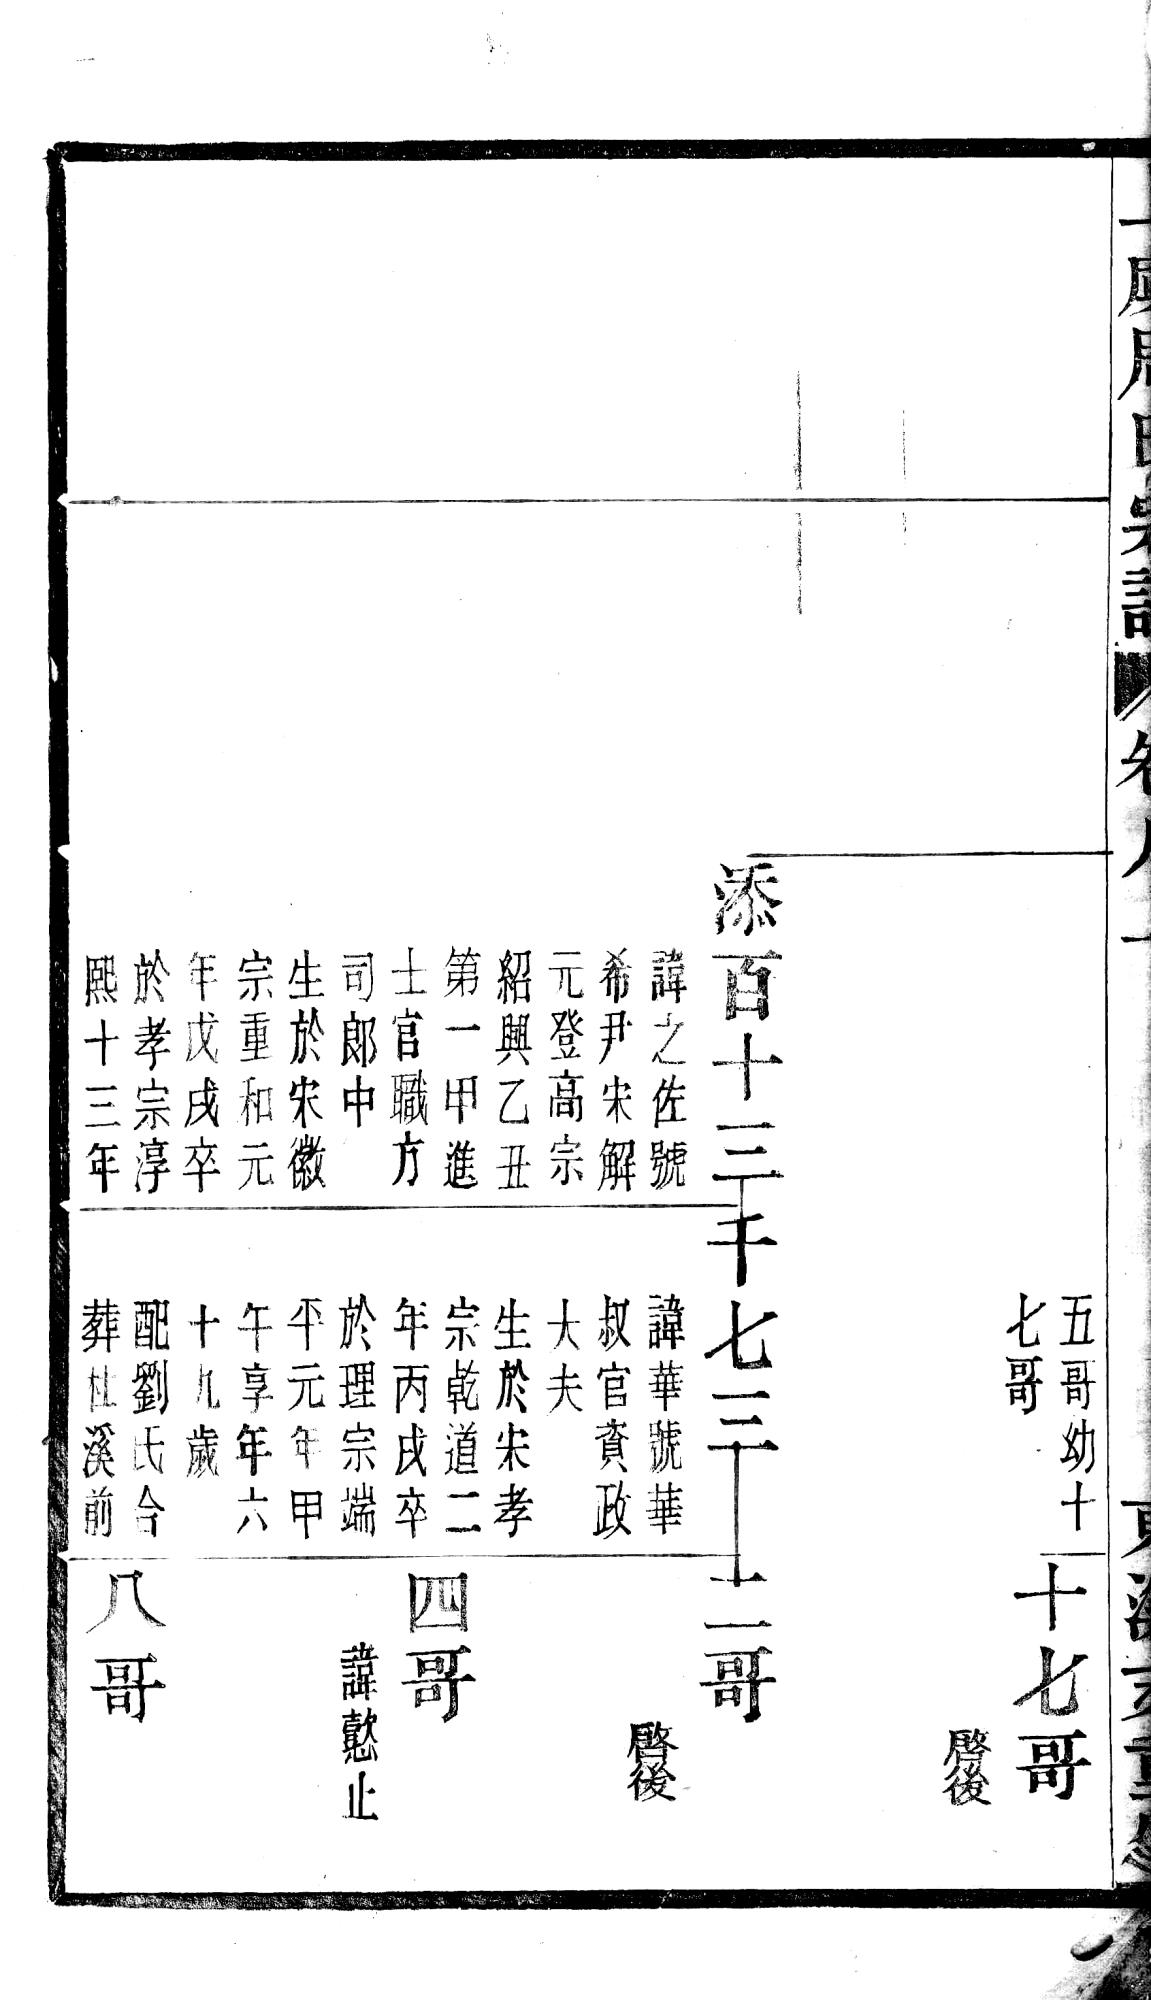 五哥幼十
七哥
十七哥
啓後
添百十三
諱之佐號
希尹宋解
元登高宗
紹興乙丑
第一甲進
士官職方
司郎中
生於宋徽
宗重和元
年戊戌卒
於孝宗淳
熙十三年
千七三
諱華號華
叔官資政
大夫
生於宋孝
宗乾道二
年丙戌卒
於理宗端
平元年甲
午享年六
十九歲
配劉氏合
葬杜溪前
二哥
啓後
四哥
諱懃止
八哥